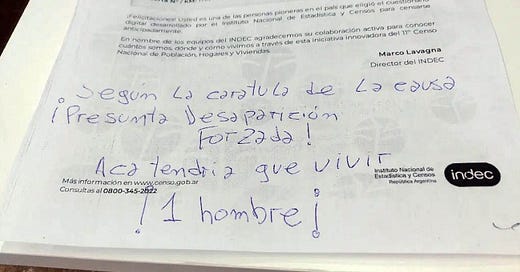 ¡Felicitaciones! Usted es una de las personas pioneras en el país que eligió el cuestionario
digital desarrollado por el Instituto Nacional de Estadística y Censos para censarse
anticipadamente.
En nombre de los equipos del INDEC agradecemos su colaboración activa para conocer
cuántos somos, dónde y cómo vivimos a través de esta iniciativa innovadora del 11° Censo
Nacional de Población, Hogares y Viviendas.
Marco Lavagna
Director del INDEC
Según La caratula de La causa
¡Presunta Desaparición
Forzada!
Aca tendria que vivir
Más información en www.censo.gob.ar
Consultas al 0800-345-2022
Instituto Nacional de
Estadística y Censos
República Argentina
indec
¡1 hombre!